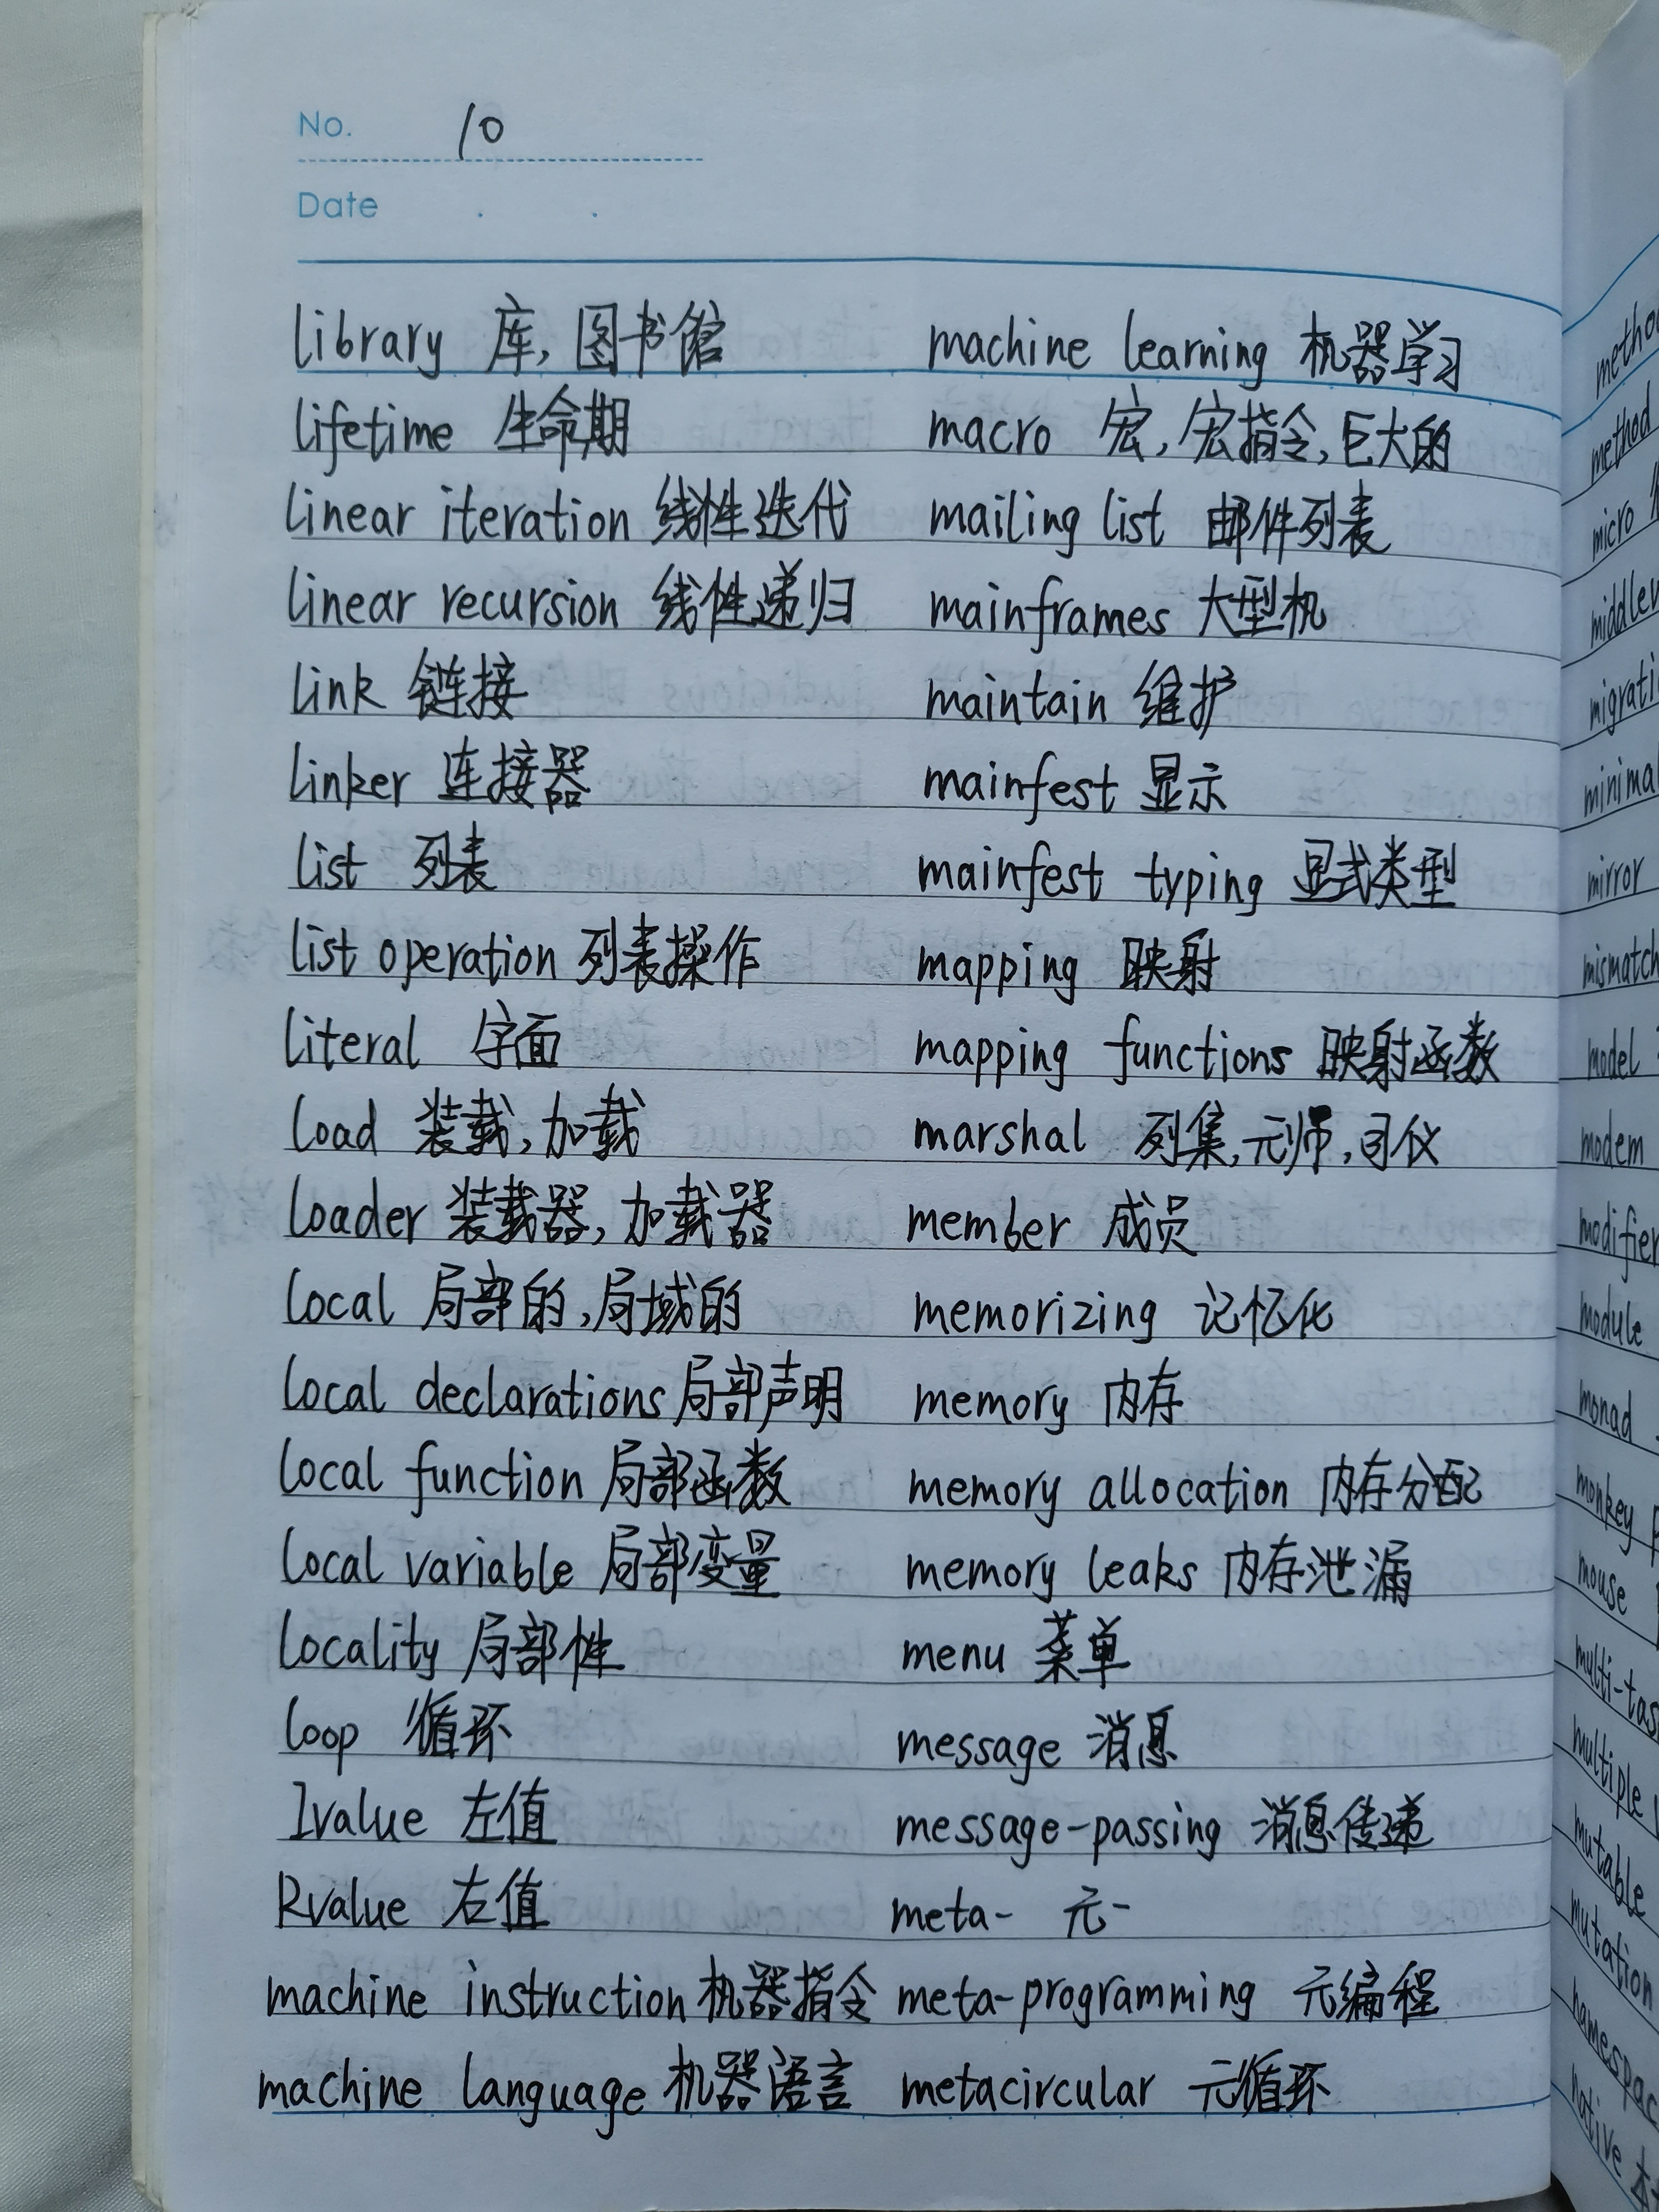 No. 10
Date . .
library 库, 图书馆
lifetime 生命期
linear iteration 线性迭代
linear recursion 线性递归
link 链接
linker 连接器
list 列表
list operation 列表操作
literal 字面
load 装载, 加载
loader 装载器, 加载器
local 局部的, 局域的
local declarations 局部声明
local function 局部函数
local variable 局部变量
locality 局部性
loop 循环
Ivalue 左值
Rvalue 右值
machine instruction 机器指令
machine language 机器语言
machine learning 机器学习
macro 宏, 宏指令, 巨大的
mailing list 邮件列表
mainframes 大型机
maintain 维护
mainfest 显示
mainfest typing 显式类型
mapping 映射
mapping functions 映射函数
marshal 列集, 元帅, 司仪
member 成员
memorizing 记忆化
memory 内存
memory allocation 内存分配
memory leaks 内存泄漏
menu 菜单
message 消息
message-passing 消息传递
meta- 元-
meta-programming 元编程
metacircular 元循环
method
micro
mirror
mismatch
model
modem
modifier
module
monad
monkey
mouse
multiple
mutable
mutation
native